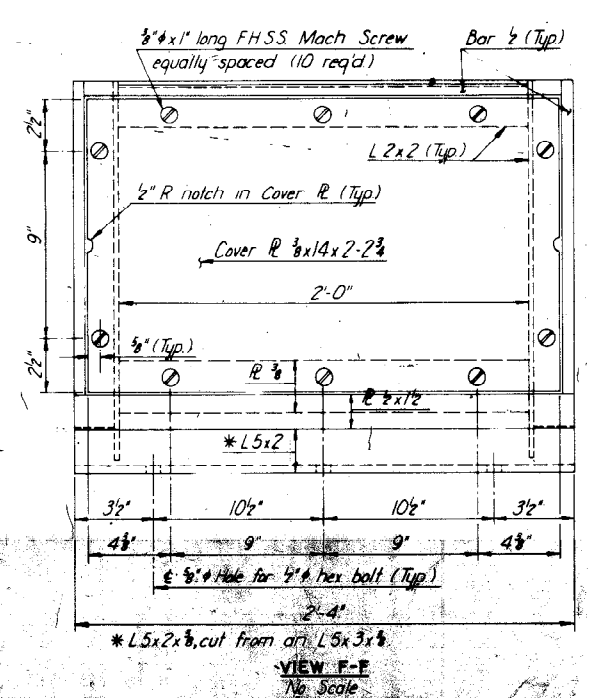 ⅜"φx1" long F.H.S.S. Mach Screw
equally spaced (10 req'd)
Bar ½ (Typ.)
2½"
L 2x2 (Typ.)
½" R notch in Cover PL (Typ.)
9"
Cover PL ⅜x14x2'-2¾
2'-0"
⅝" (Typ.)
2½"
PL ⅜
PL ½x1½
* L5x2
3½"
10½"
10½"
3½"
4⅜"
9"
9"
4⅜"
℄ ⅝"φ Hole for ½"φ hex bolt (Typ.)
2'-4"
* L5x2x⅜, cut from an L5x3x⅜
VIEW F-F
No Scale